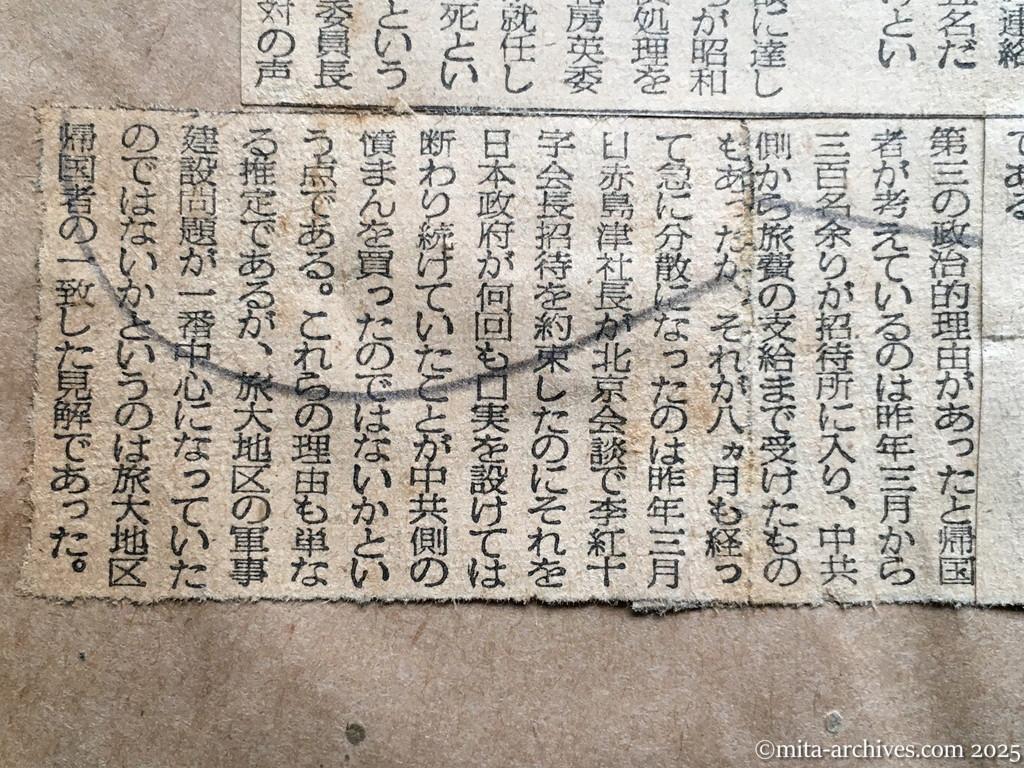 連絡
五名だ
けとい
に達し
が昭和
処理を
房英委
就任し
死とい
という
委員長
対の声
である
第三の政治的理由があったと帰国
者が考えているのは昨年三月から
三百名余りが招待所に入り、中共
側から旅費の支給まで受けたもの
もあったが、それが八ヵ月も経っ
て急に分散になったのは昨年三月
日赤島津社長が北京会談で李紅十
字会長招待を約束したのにそれを
日本政府が何回も口実を設けては
断わり続けていたことが中共側の
憤まんを買ったのではないかとい
う点である。これらの理由も単な
る推定であるが、旅大地区の軍事
建設問題が一番中心になっていた
のではないかというのは旅大地区
帰国者の一致した見解であった。
©mita-archives.com 2025